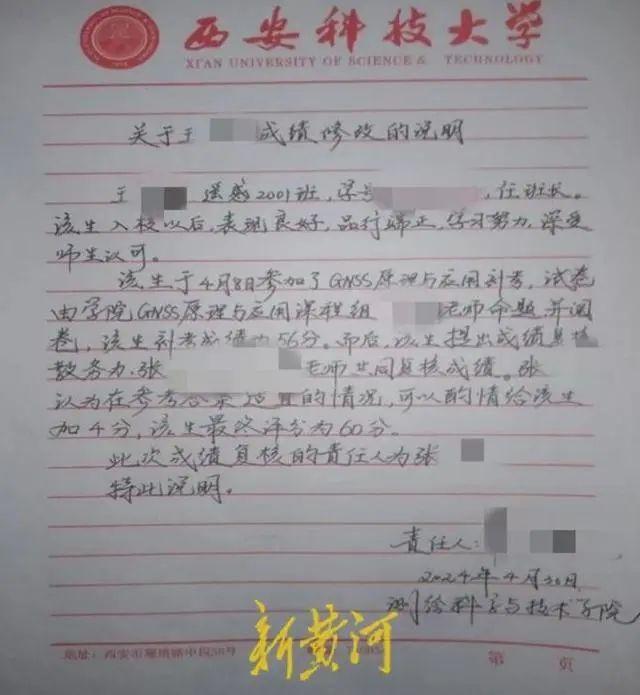 西安科技大学
XI'AN UNIVERSITY OF SCIENCE & TECHNOLOGY
关于王 成绩修改的说明
王 遥感2001班，学号 ，任班长。
该生入校以后，表现良好，品行端正，学习努力，深受
师生认可。
该生于4月8日参加了GNSS原理与应用补考，试卷
由学院GNSS原理与应用课程组 老师命题并阅
卷，该生补考成绩为56分。而后，该生提出成绩复核
教务办张 老师共同复核成绩。张
认为在参考答案 的情况，可以酌情给该生
加4分，该生最终评分为60分。
此次成绩复核的责任人为张
特此说明。
责任人：
2024年4月30日
测绘科学与技术学院
新黄河
地址：西安市雁塔路中段58号
第 页